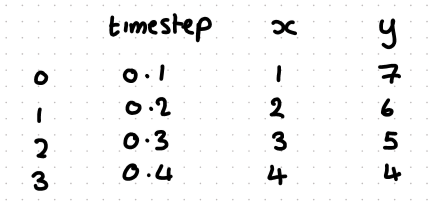 timestep x y
0 0.1 1 7
1 0.2 2 6
2 0.3 3 5
3 0.4 4 4